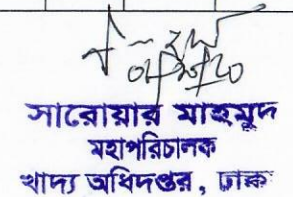 সারোয়ার মাহমুদ
মহাপরিচালক
খাদ্য অধিদপ্তর, ঢাকা